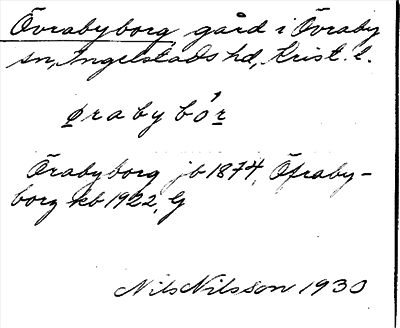 Övrabyborg gård i Övraby
sn, Ingelstads hd, Krist. l.
øraby bór
Örabyborg jb 1874, Öfraby-
borg kb 1922, G
Nils Nilsson 1930